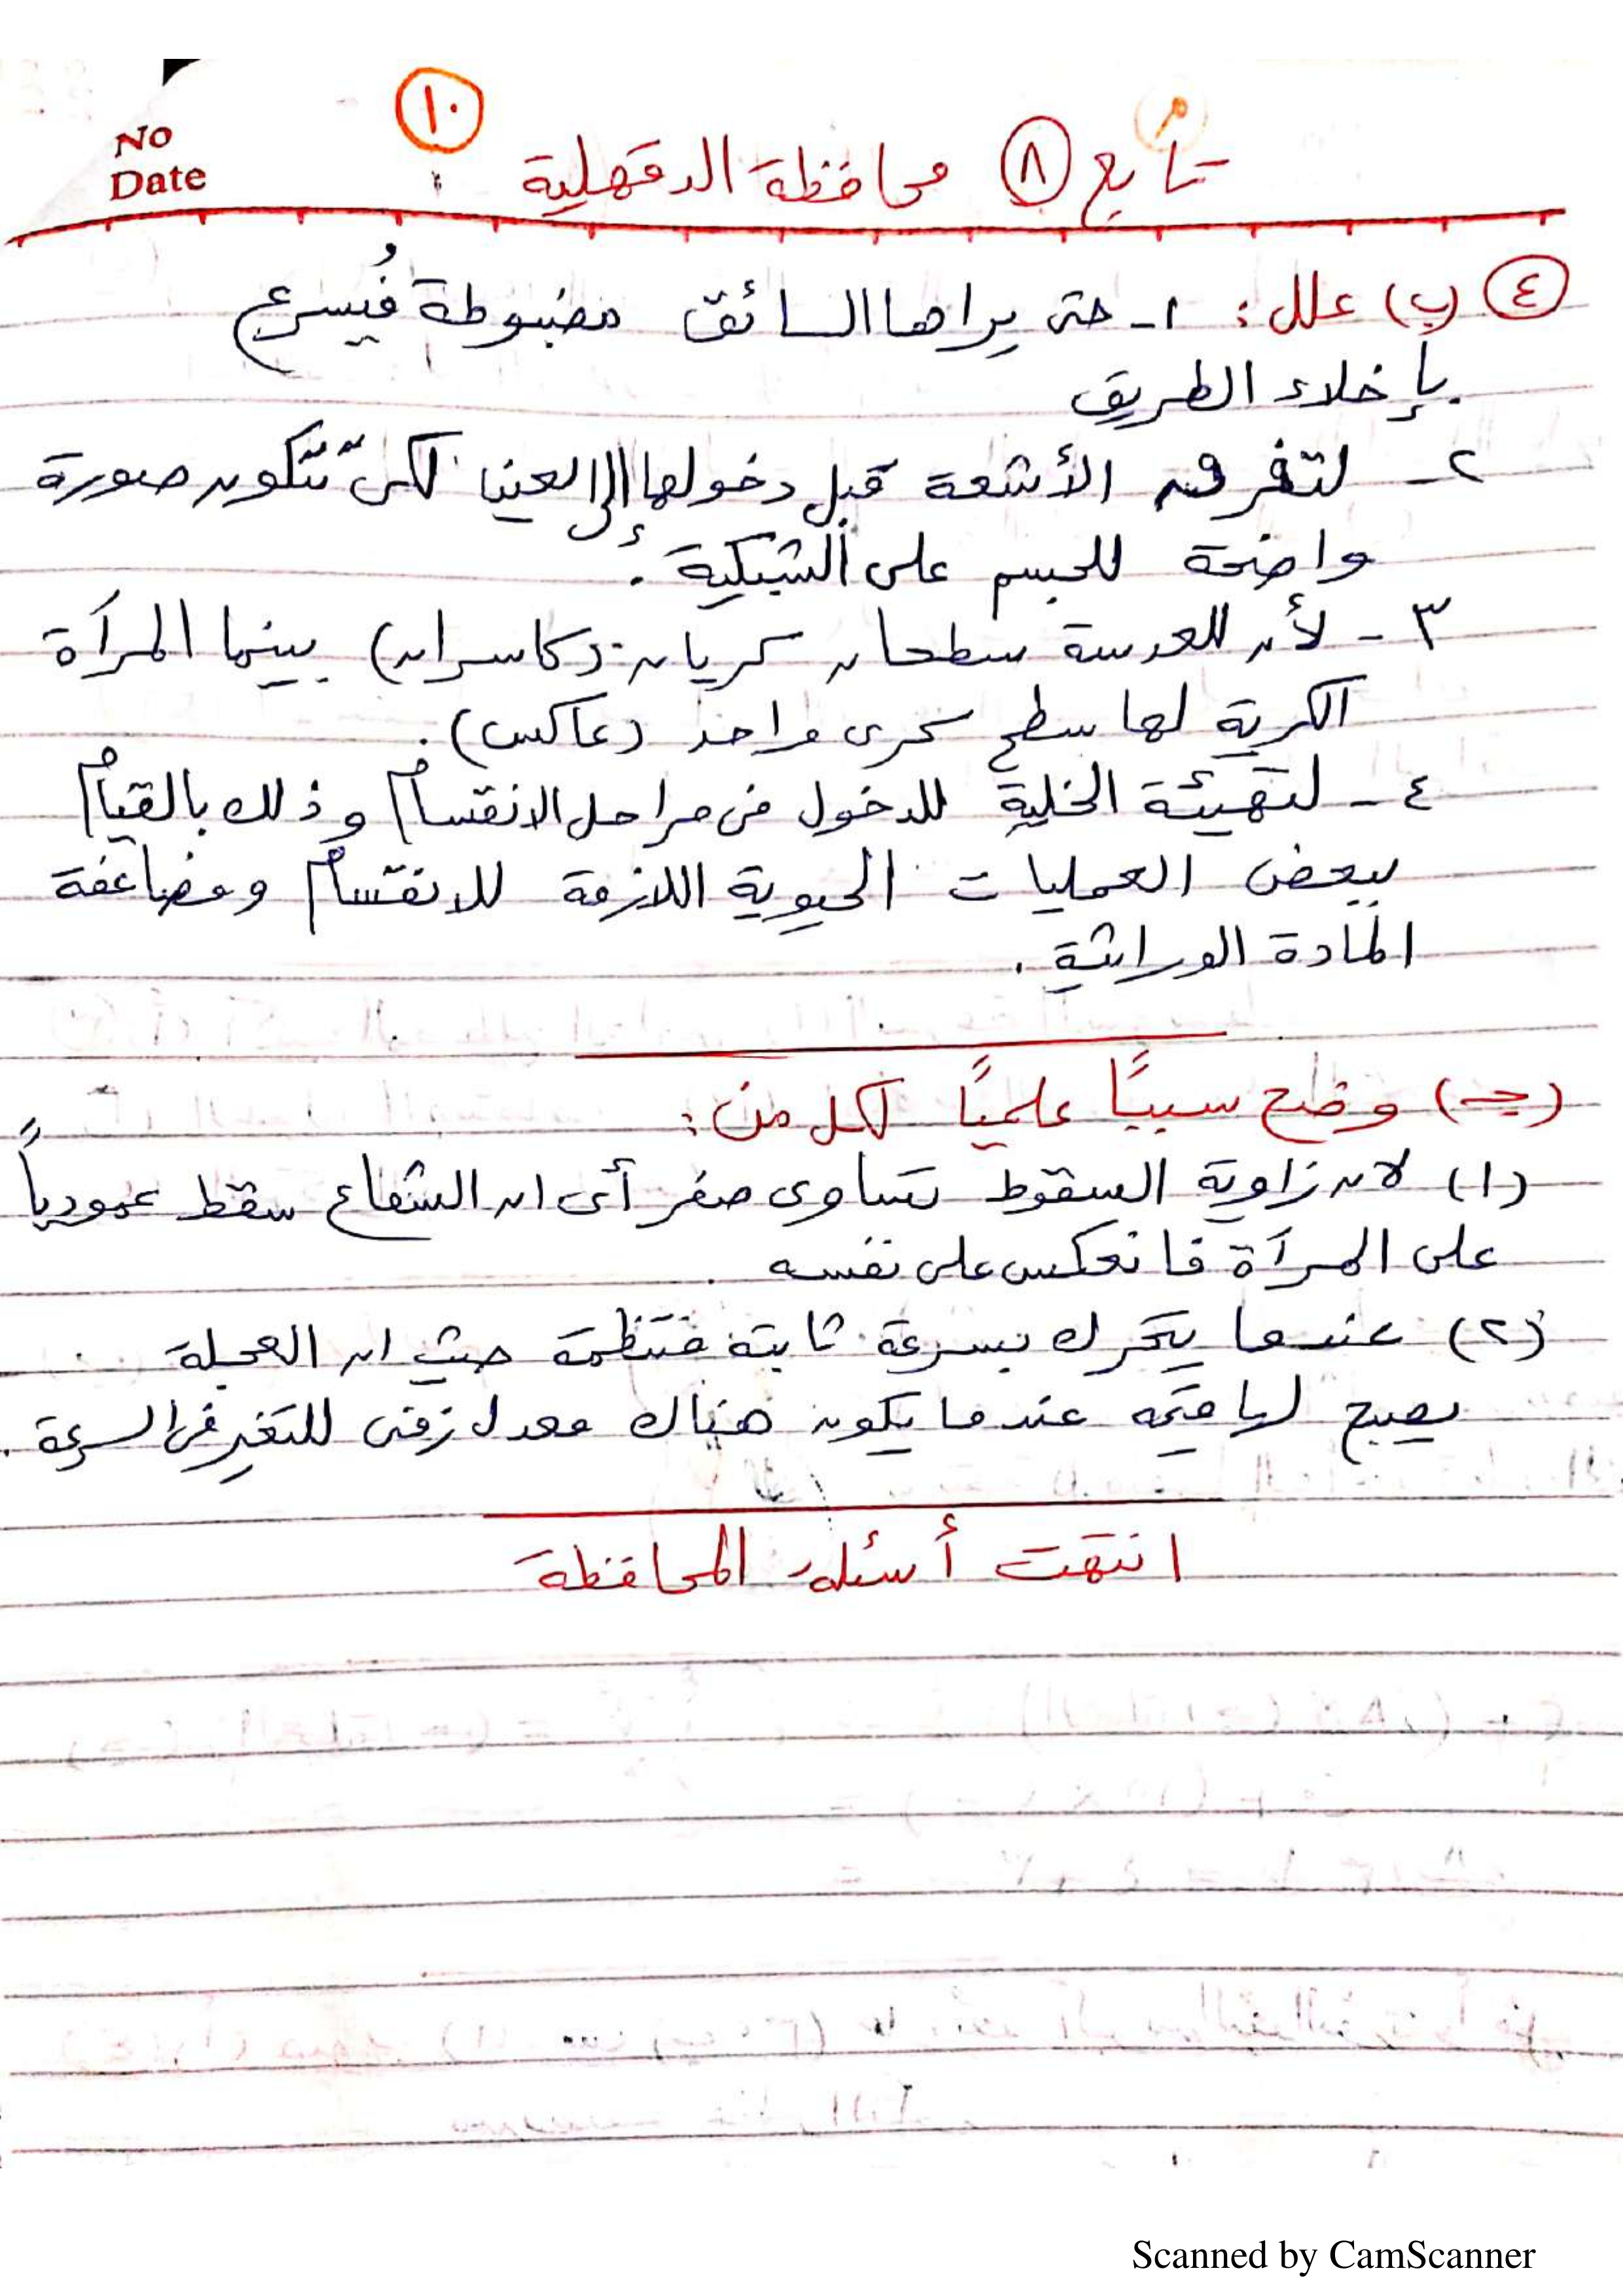 ١٠
No
Date
تابع ٨ محافظة الدقهلية
٤ (ب) علل : ١- حتى يراها السائق مضبوطة فيُسرع
بإخلاء الطريق
٢- لتفرق الأشعة قبل دخولها إلى العين لكى تتكون صورة
واضحة للجسم على الشبكية .
٣- لأن للعدسة سطحان كريان (كاسران) بينما المرآة
الكرية لها سطح كرى واحد (عاكس) .
٤- لتهيئة الخلية للدخول فى مراحل الانقسام وذلك بالقيام
ببعض العمليات الحيوية اللازمة للانقسام ومضاعفة
المادة الوراثية .
(جـ) وضح سببًا علميًا لكل من :
(١) لان زاوية السقوط تساوى صفر أى ان الشعاع سقط عمودياً
على المرآة فانعكس على نفسه
(٢) عندما يتحرك بسرعة ثابتة منتظمة حيث ان العجلة
يصبح لها قيمه عندما يكون هناك معدل زمنى للتغير فى السرعة .
انتهت أسئلة المحافظة
Scanned by CamScanner